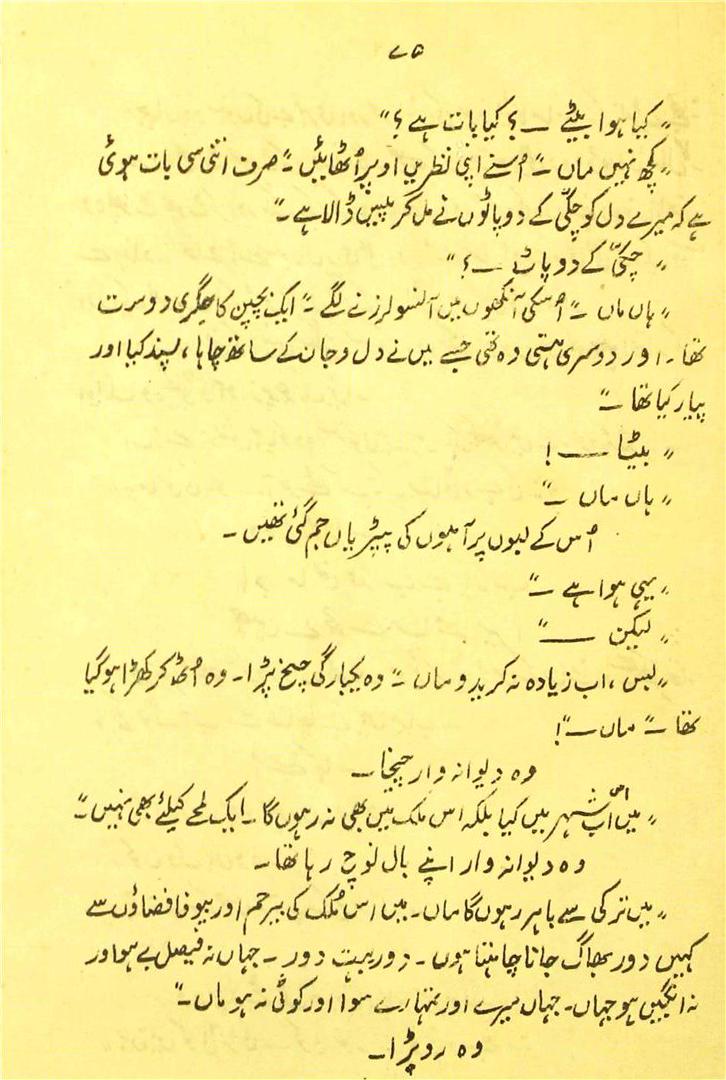 ۷۵
” کیا ہوا بیٹے ــ؟ کیا بات ہے؟“
” کچھ نہیں ماں ــ“ اُسنے اپنی نظریں اوپر اُٹھائیں ــ” صرف اتنی سی بات ہوئی
ہے کہ میرے دل کو چکیّ کے دو پاٹوں نے مل کر پیس ڈالا ہے ــ“
” چکیّ کے دو پاٹ ــ؟“
” ہاں ماں ــ“ اُسکی آنکھوں میں آنسو لرزنے لگے ــ” ایک بچپن کا جگری دوست
تھا ۔ اور دوسری ہستی وہ تھی جسے میں نے دل و جان کے ساتھ چاہا ، پسند کیا اور
پیار کیا تھا ــ“
” بیٹا ــــ !
” ہاں ماں ــ“
اُس کے لبوں پر آہوں کی پپڑیاں جم گئی تھیں ۔
” یہی ہوا ہے ــ“
” لیکن ــــ“
” بس ، اب زیادہ نہ کریدو ماں ــ“ وہ یکبارگی چیخ پڑا ۔ وہ اُٹھ کر کھڑا ہو گیا
تھا ــ” ماں ــ“!
وہ دیوانہ وار چیخا ــ
” میں اب اس شہر میں کیا بلکہ اس ملک میں بھی نہ رہوں گا ۔ ایک لمحے کیلئے بھی نہیں ــ“
وہ دیوانہ وار اپنے بال نوچ رہا تھا ــ
” میں ترکی سے باہر رہوں گا ماں ۔ میں اس مُلک کی بیرحم اور بیوفا فضاؤں سے
کہیں دور بھاگ جانا چاہتا ہوں ۔ دور بہت دور ــ جہاں نہ فیصل بے ہو اور
نہ انجیں ہو جہاں ۔ جہاں میرے اور تمہارے سوا اور کوئی نہ ہو ماں ــ“
وہ رو پڑا ــ